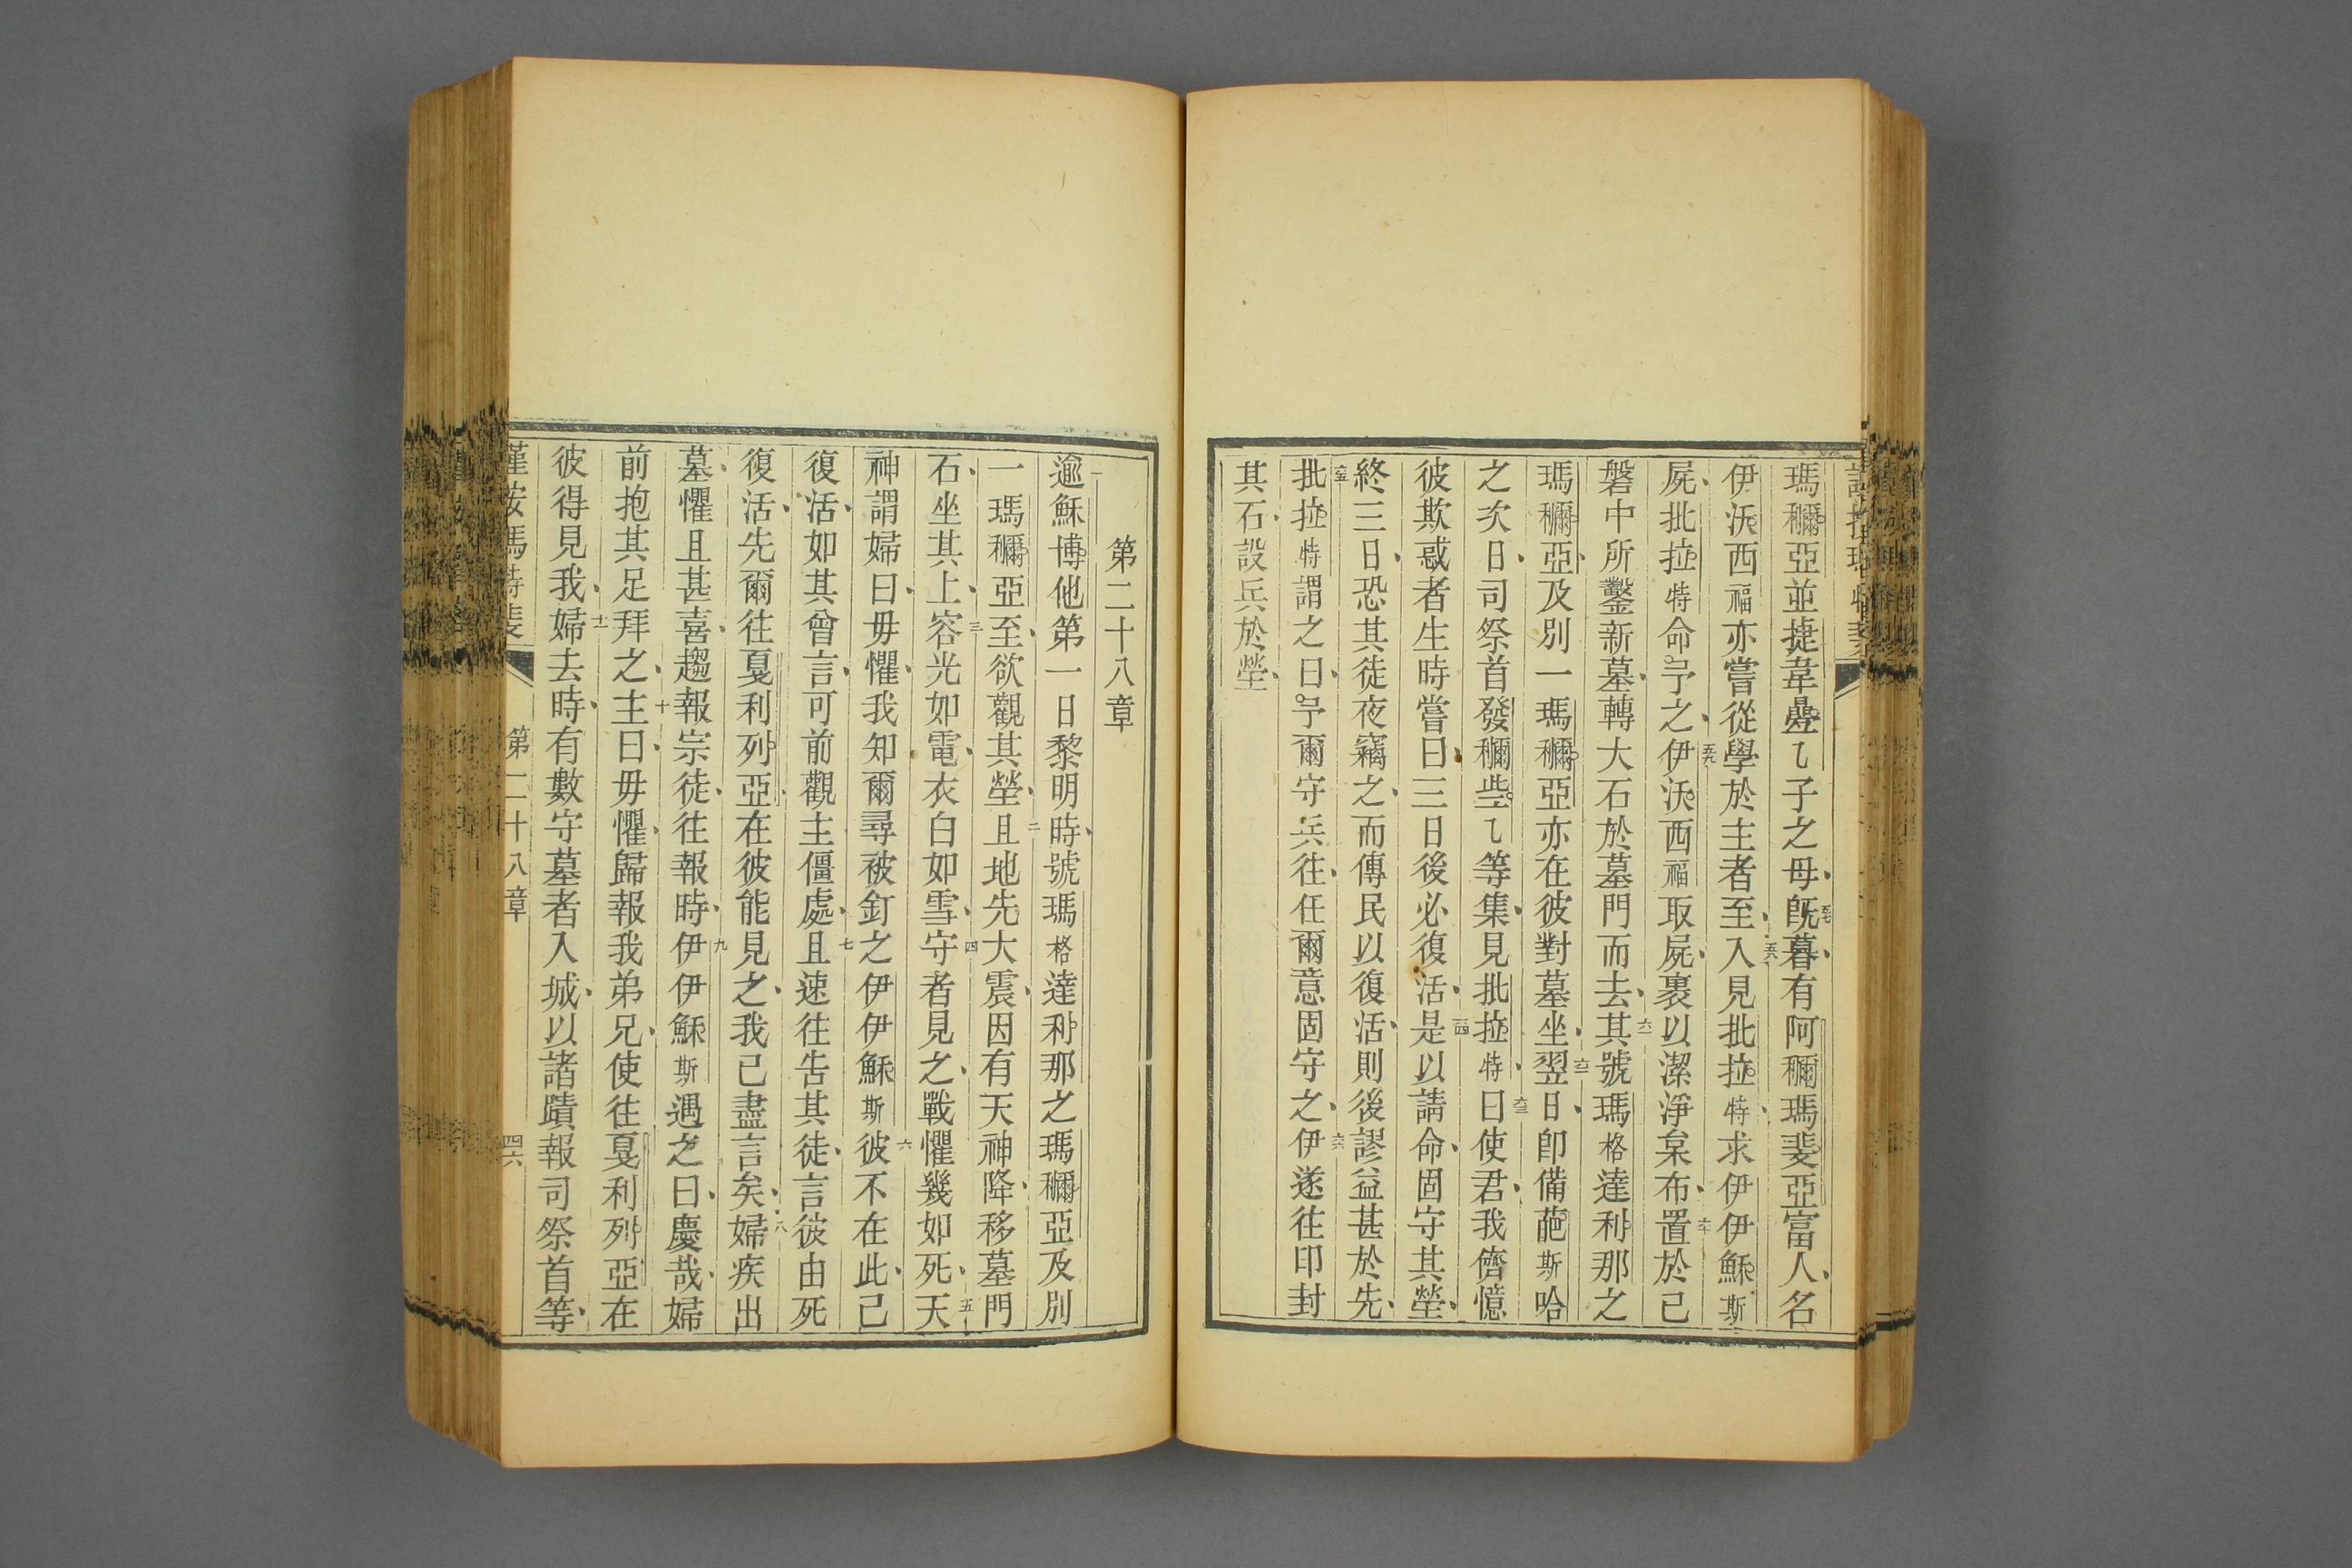 瑪穪亞並捷韋乚子之母旣暮有阿穪瑪斐亞富人名
伊沃西福亦嘗從學於主者至入見批拉特求伊伊穌斯
屍批拉特命予之伊沃西福取屍裹以潔淨枲布置於己
磐中所鑿新墓轉大石於墓門而去其號瑪格達利那之
瑪穪亞及別一瑪穪亞亦在彼對墓坐翌日卽備葩斯哈
之次日司祭首發穪些乚等集見批拉特曰使君我儕憶
彼欺惑者生時嘗曰三日後必復活是以請命固守其塋
終三日恐其徒夜竊之而傳民以復活則後謬益甚於先
批拉特謂之曰予爾守兵往任爾意固守之伊遂往印封
其石設兵於塋
第二十八章
逾穌博他第一日黎明時號瑪格達利那之瑪穪亞及別
一瑪穪亞至欲觀其塋且地先大震因有天神降移墓門
石坐其上容光如電衣白如雪守者見之戰懼幾如死天
神謂婦曰毋懼我知爾尋被釘之伊伊穌斯彼不在此已
復活如其曾言可前觀主僵處且速往告其徒言彼由死
復活先爾往戛利列亞在彼能見之我已盡言矣婦疾出
墓懼且甚喜趨報宗徒往報時伊伊穌斯遇之曰慶哉婦
前抱其足拜之主曰毋懼歸報我弟兄使往戛利列亞在
彼得見我婦去時有數守墓者入城以諸蹟報司祭首等
第二十八章 四六